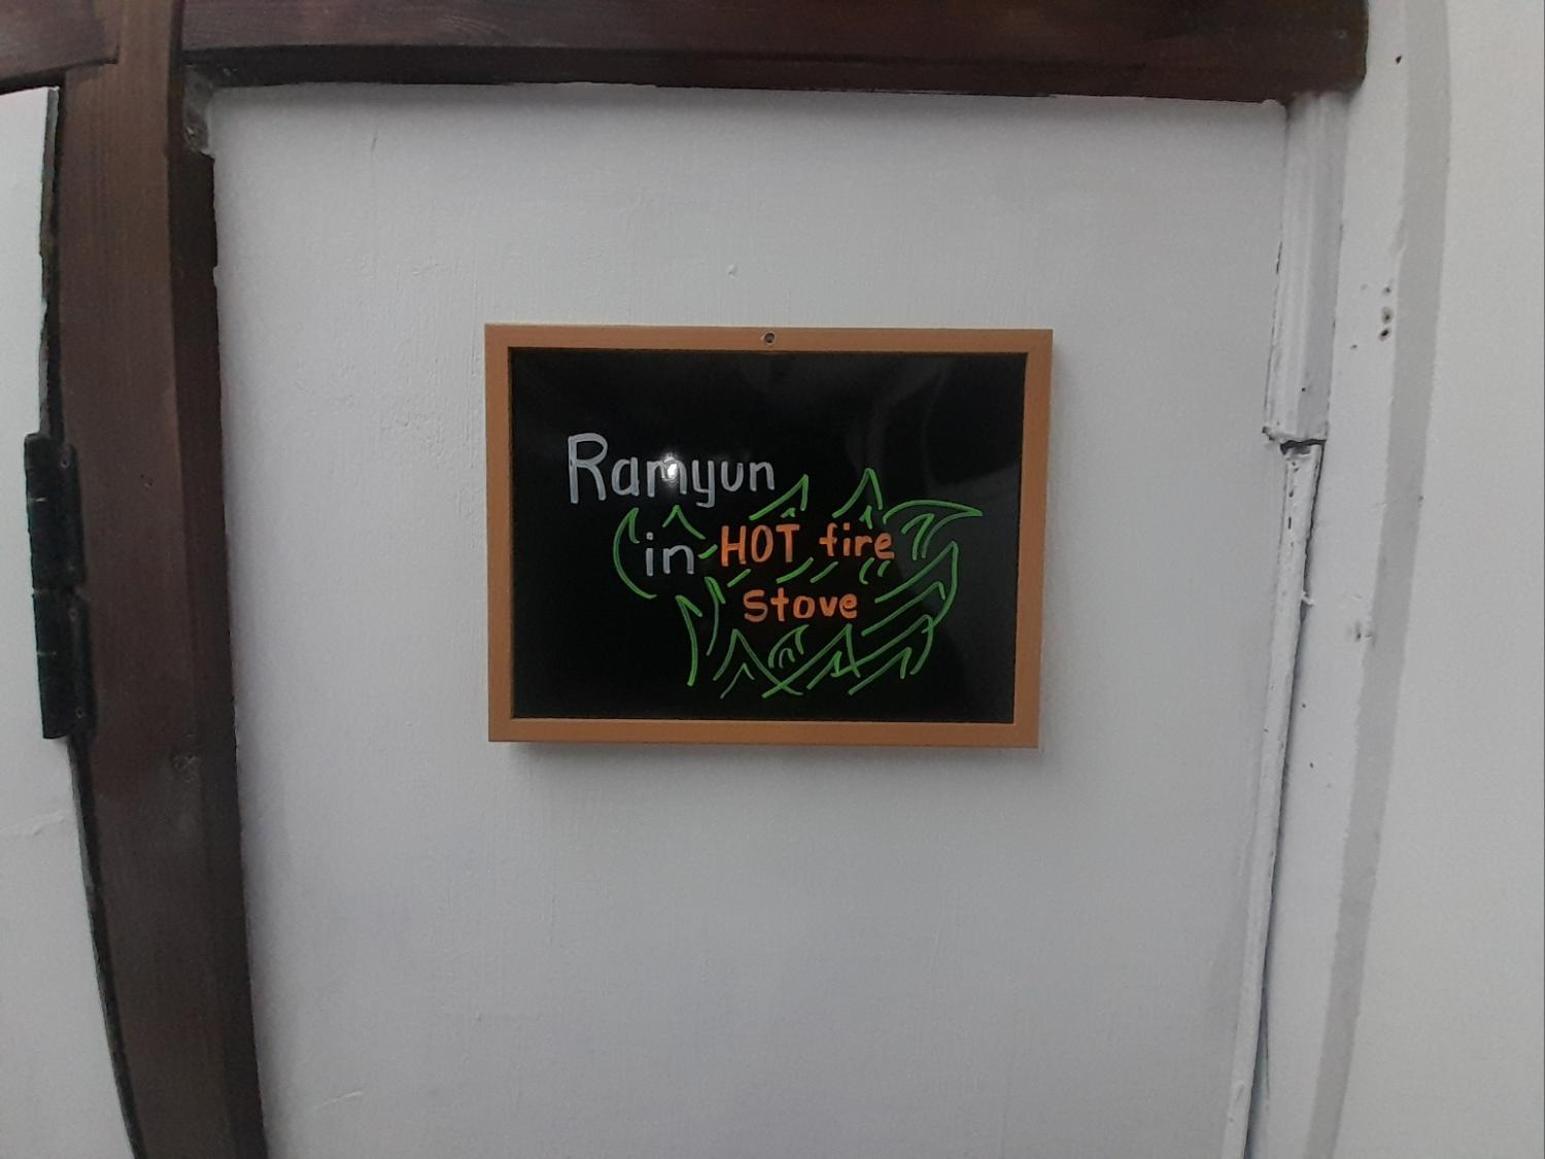 Ramyun
in HOT fire
stove